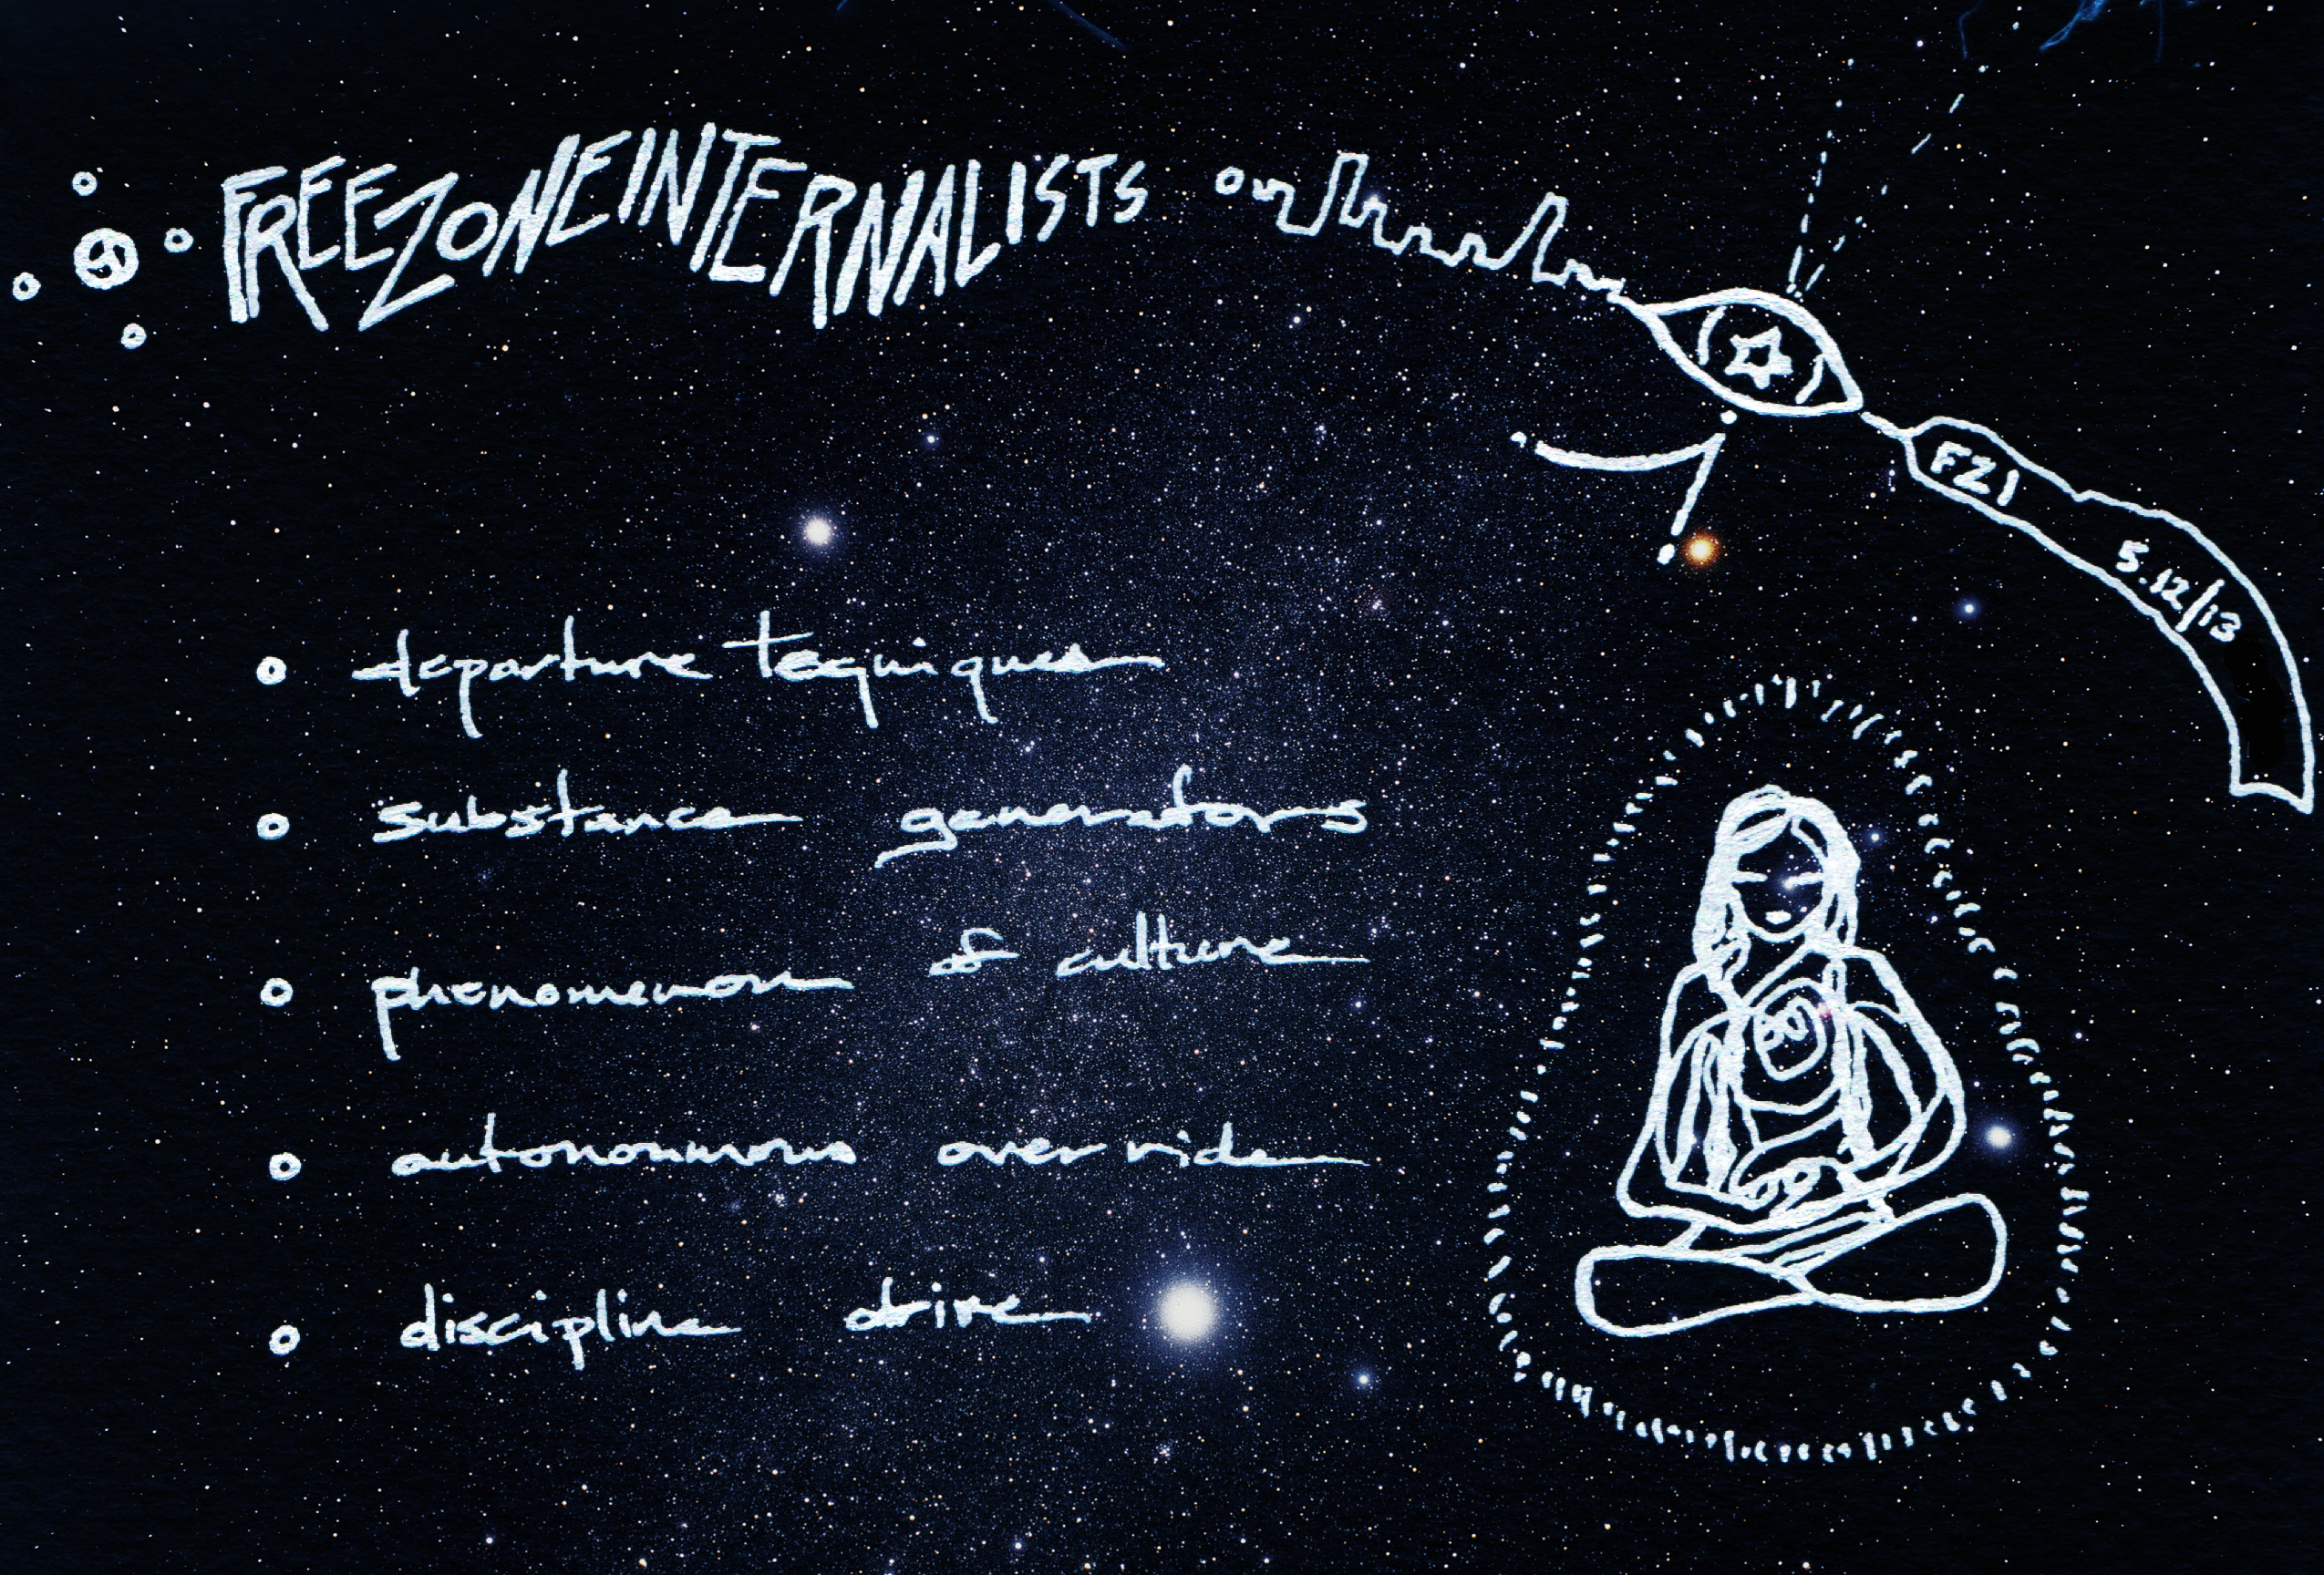 FREEZONEINTERNALISTS
FZI
5.12/13
departure tequniques
substance generators
phenomenon of culture
autonomous over ride
discipline drive